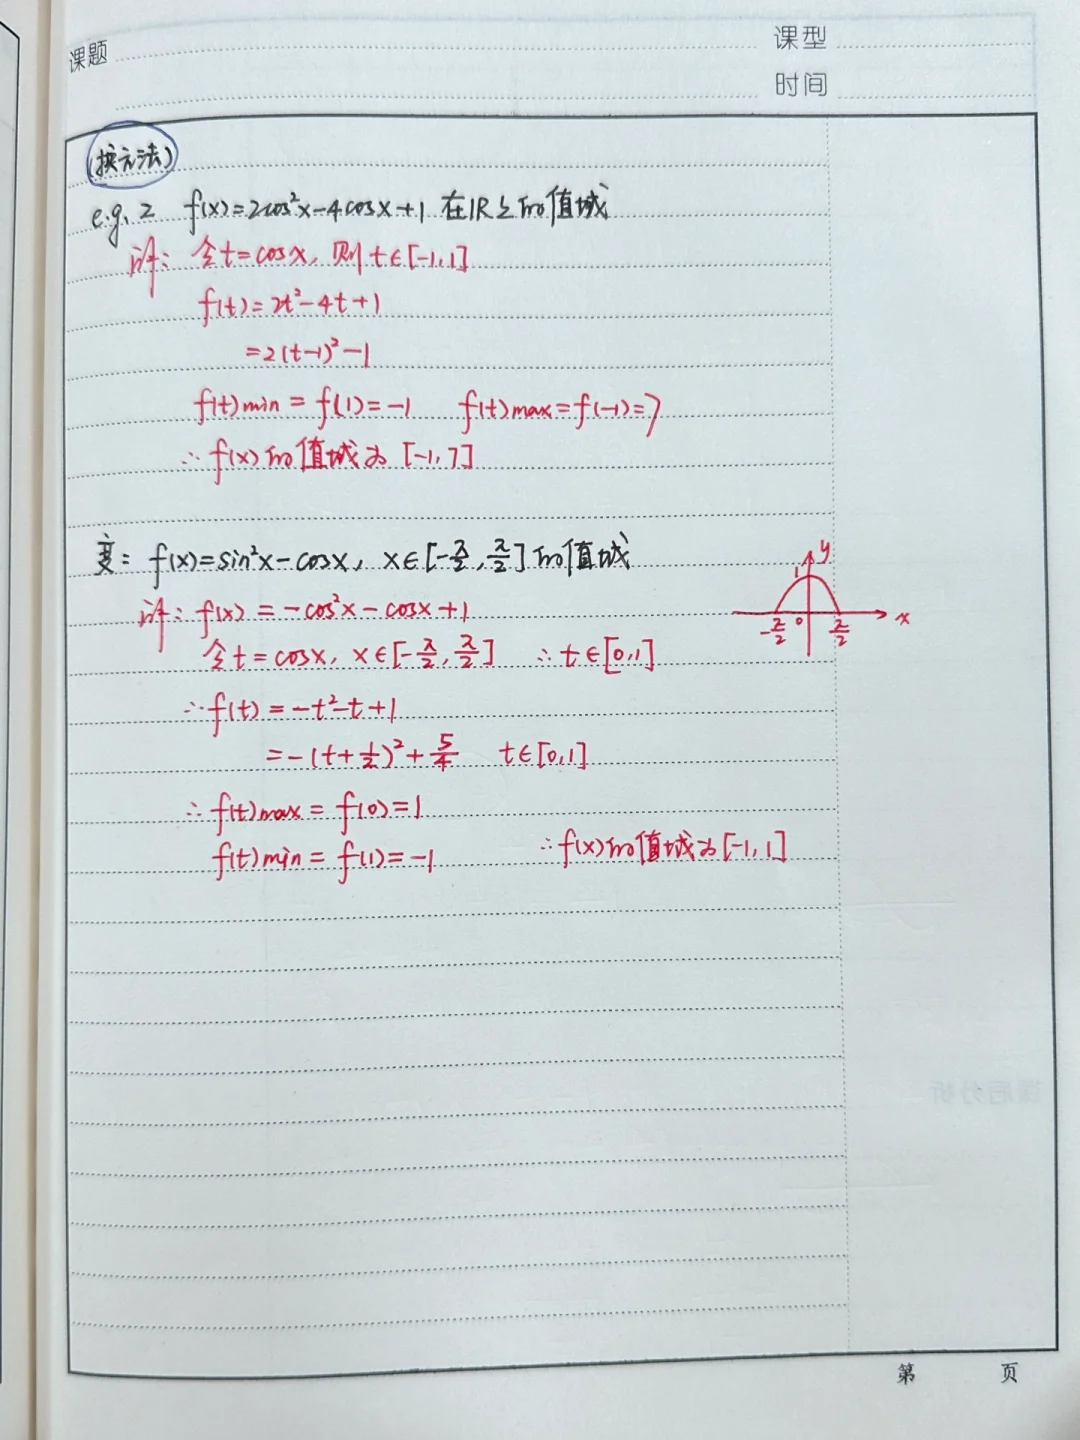 课题
课型
时间
(换元法)
e.g. 2 f(x)=2cos²x-4cosx+1 在IR上的值域
译: 令t=cosx, 则t∈[-1,1]
f(t)=2t²-4t+1
=2(t-1)²-1
f(t)min=f(1)=-1 f(t)max=f(-1)=7
∴f(x)的值域为[-1,7]
变: f(x)=sin²x-cosx, x∈[-π/2, π/2]的值域
译: f(x)=-cos²x-cosx+1
令t=cosx, x∈[-π/2, π/2] ∴t∈[0,1]
∴f(t)=-t²-t+1
=-(t+1/2)²+5/4 t∈[0,1]
∴f(t)max=f(0)=1
f(t)min=f(1)=-1 ∴f(x)的值域为[-1,1]
y
1
-π/2 0 π/2 x
课后分析
第 页